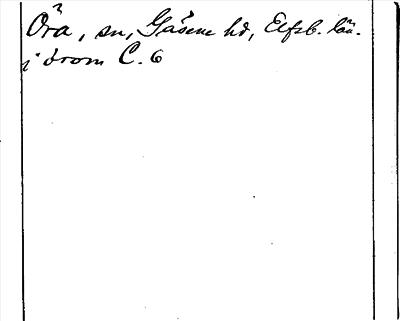 Öra, sn, Gäsene hd, Elfsb. län.
i Örom C. 6